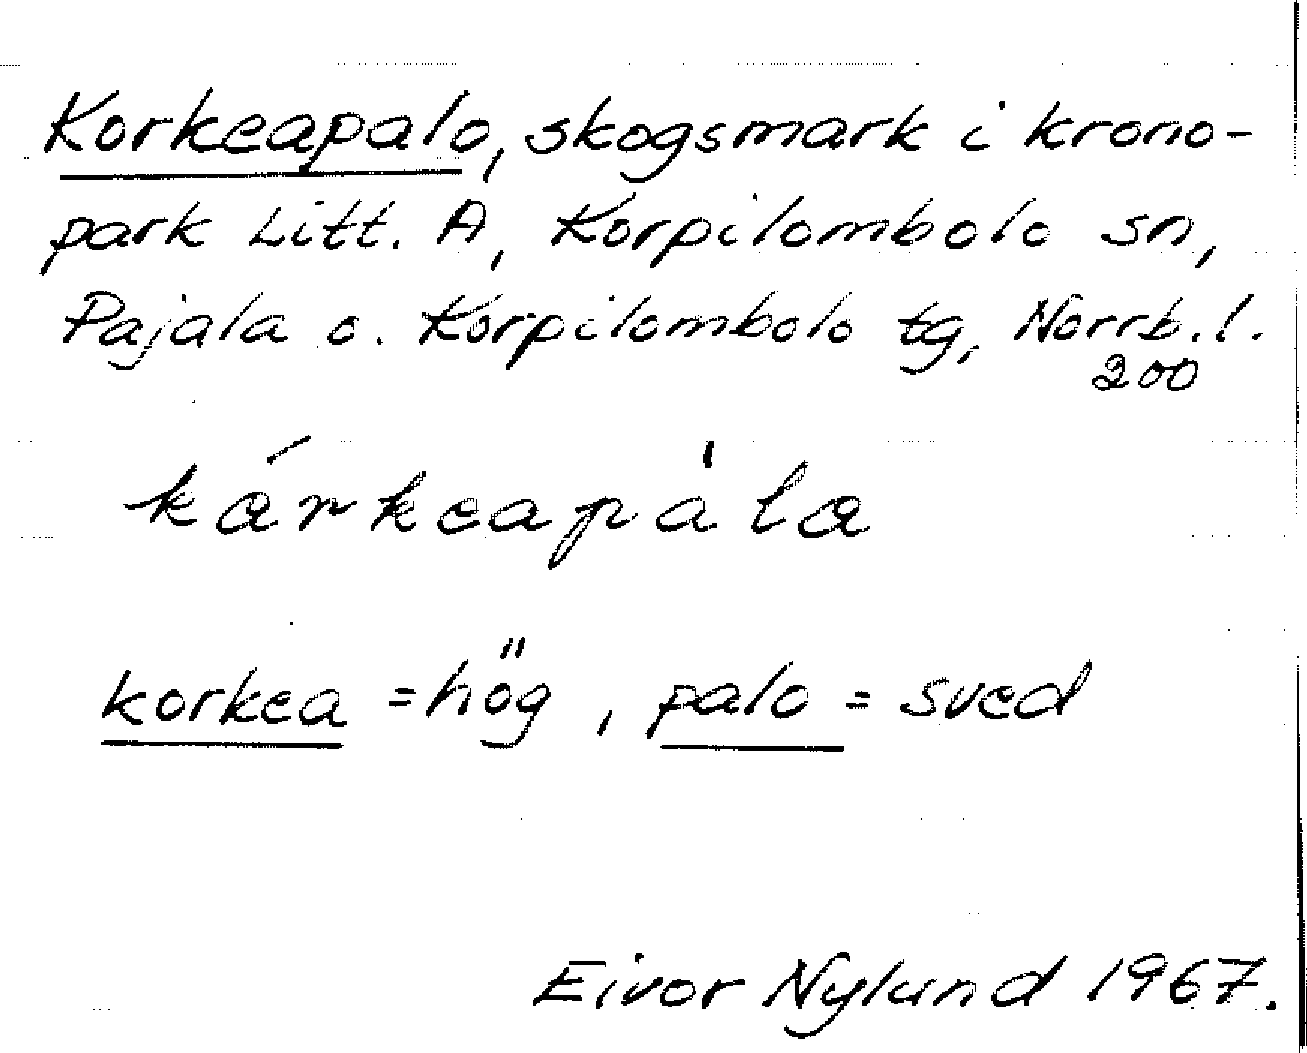 Korkeapalo, skogsmark i krono-
park Litt. A, Korpilombolo sn,
Pajala o. Korpilombolo tg, Norrb. l.
200
kårkeapàla
korkea = hög, palo = sved
Eivor Nylund 1967.